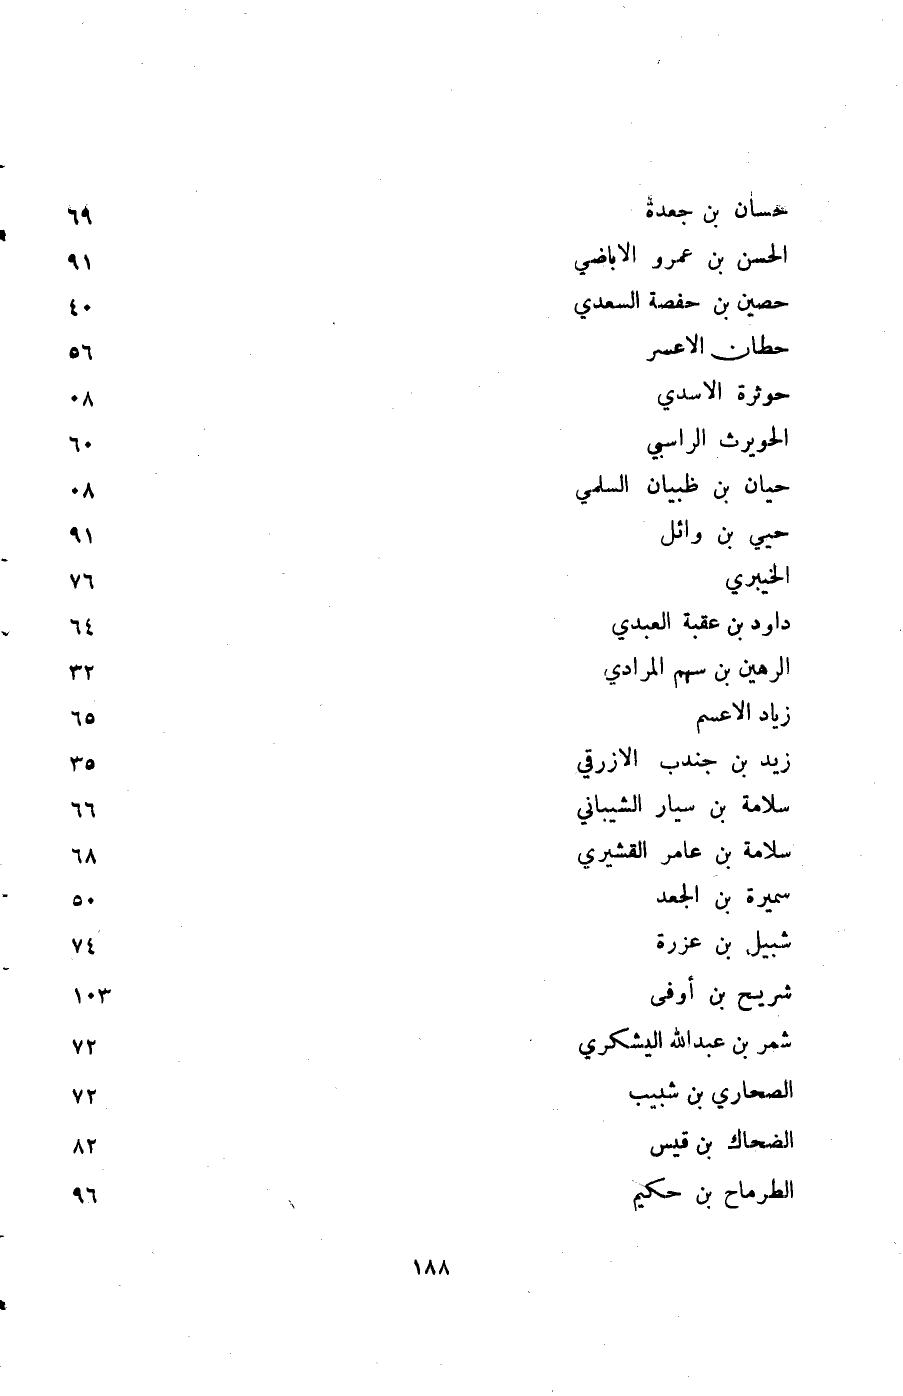 حسان بن جعدة ٦٩
الحسن بن عمرو الاباضي ٩١
حصين بن حفصة السعدي ٤٠
حطان الاعسر ٥٦
حوثرة الاسدي ٠٨
الحويرث الراسبي ٦٠
حيان بن ظبيان السلمي ٠٨
حيي بن وائل ٩١
الخيبري ٧٦
داود بن عقبة العبدي ٦٤
الرهين بن سهم المرادي ٣٢
زياد الاعسم ٦٥
زيد بن جندب الازرقي ٣٥
سلامة بن سيار الشيباني ٦٦
سلامة بن عامر القشيري ٦٨
سميرة بن الجعد ٥٠
شبيل بن عزرة ٧٤
شريح بن أوفى ١٠٣
شمر بن عبدالله اليشكري ٧٢
الصحاري بن شبيب ٧٢
الضحاك بن قيس ٨٢
الطرماح بن حكيم ٩٦
١٨٨